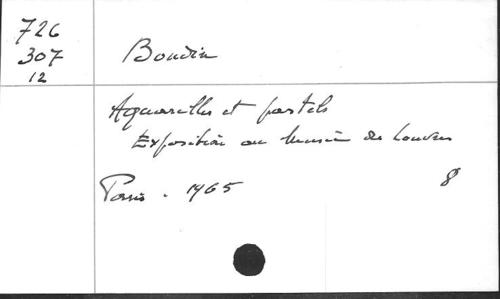 726
307
12
Boudin
Aquarelles et pastels
Exposition au Musée du Louvre
Paris. 1965
8